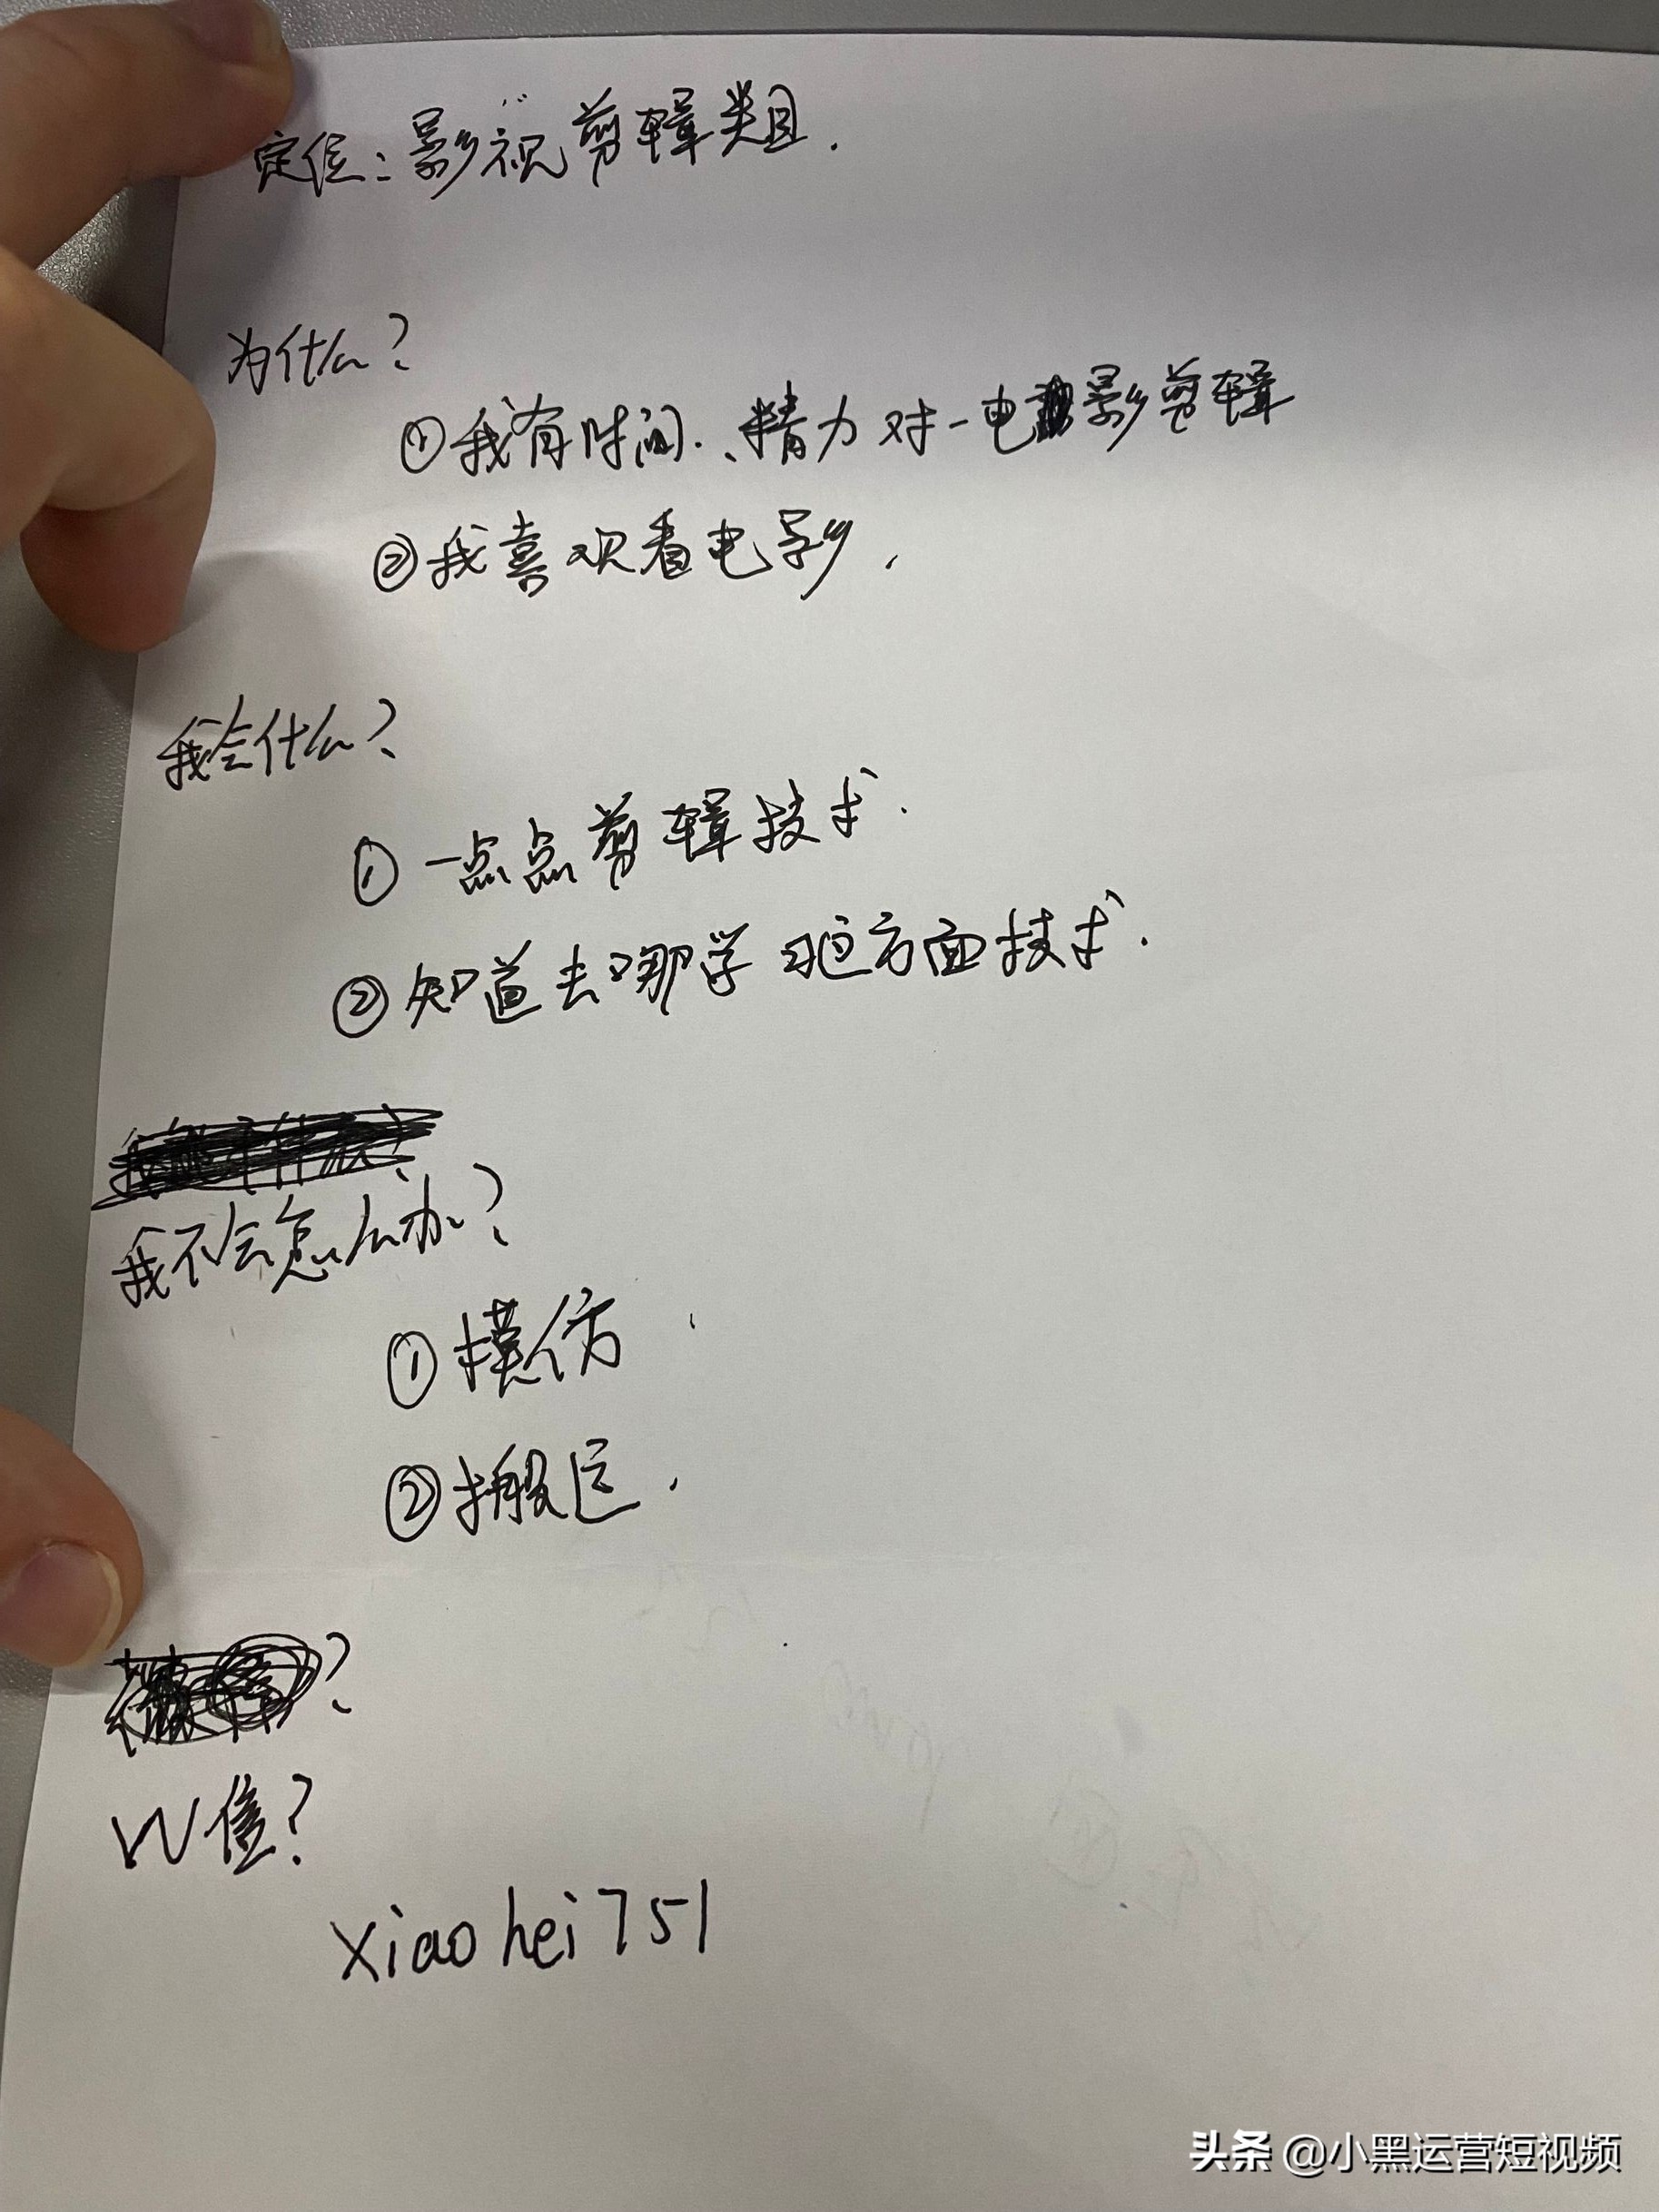 定位：影视剪辑类目.
为什么？
①我有时间、精力对一电影剪辑
②我喜观看电影.
我会什么？
①一点点剪辑技术.
②知道去哪学习这方面技术.
我不会怎么办？
①模仿
②搬运.
?
W信？
xiaohei751
头条 @小黑运营短视频